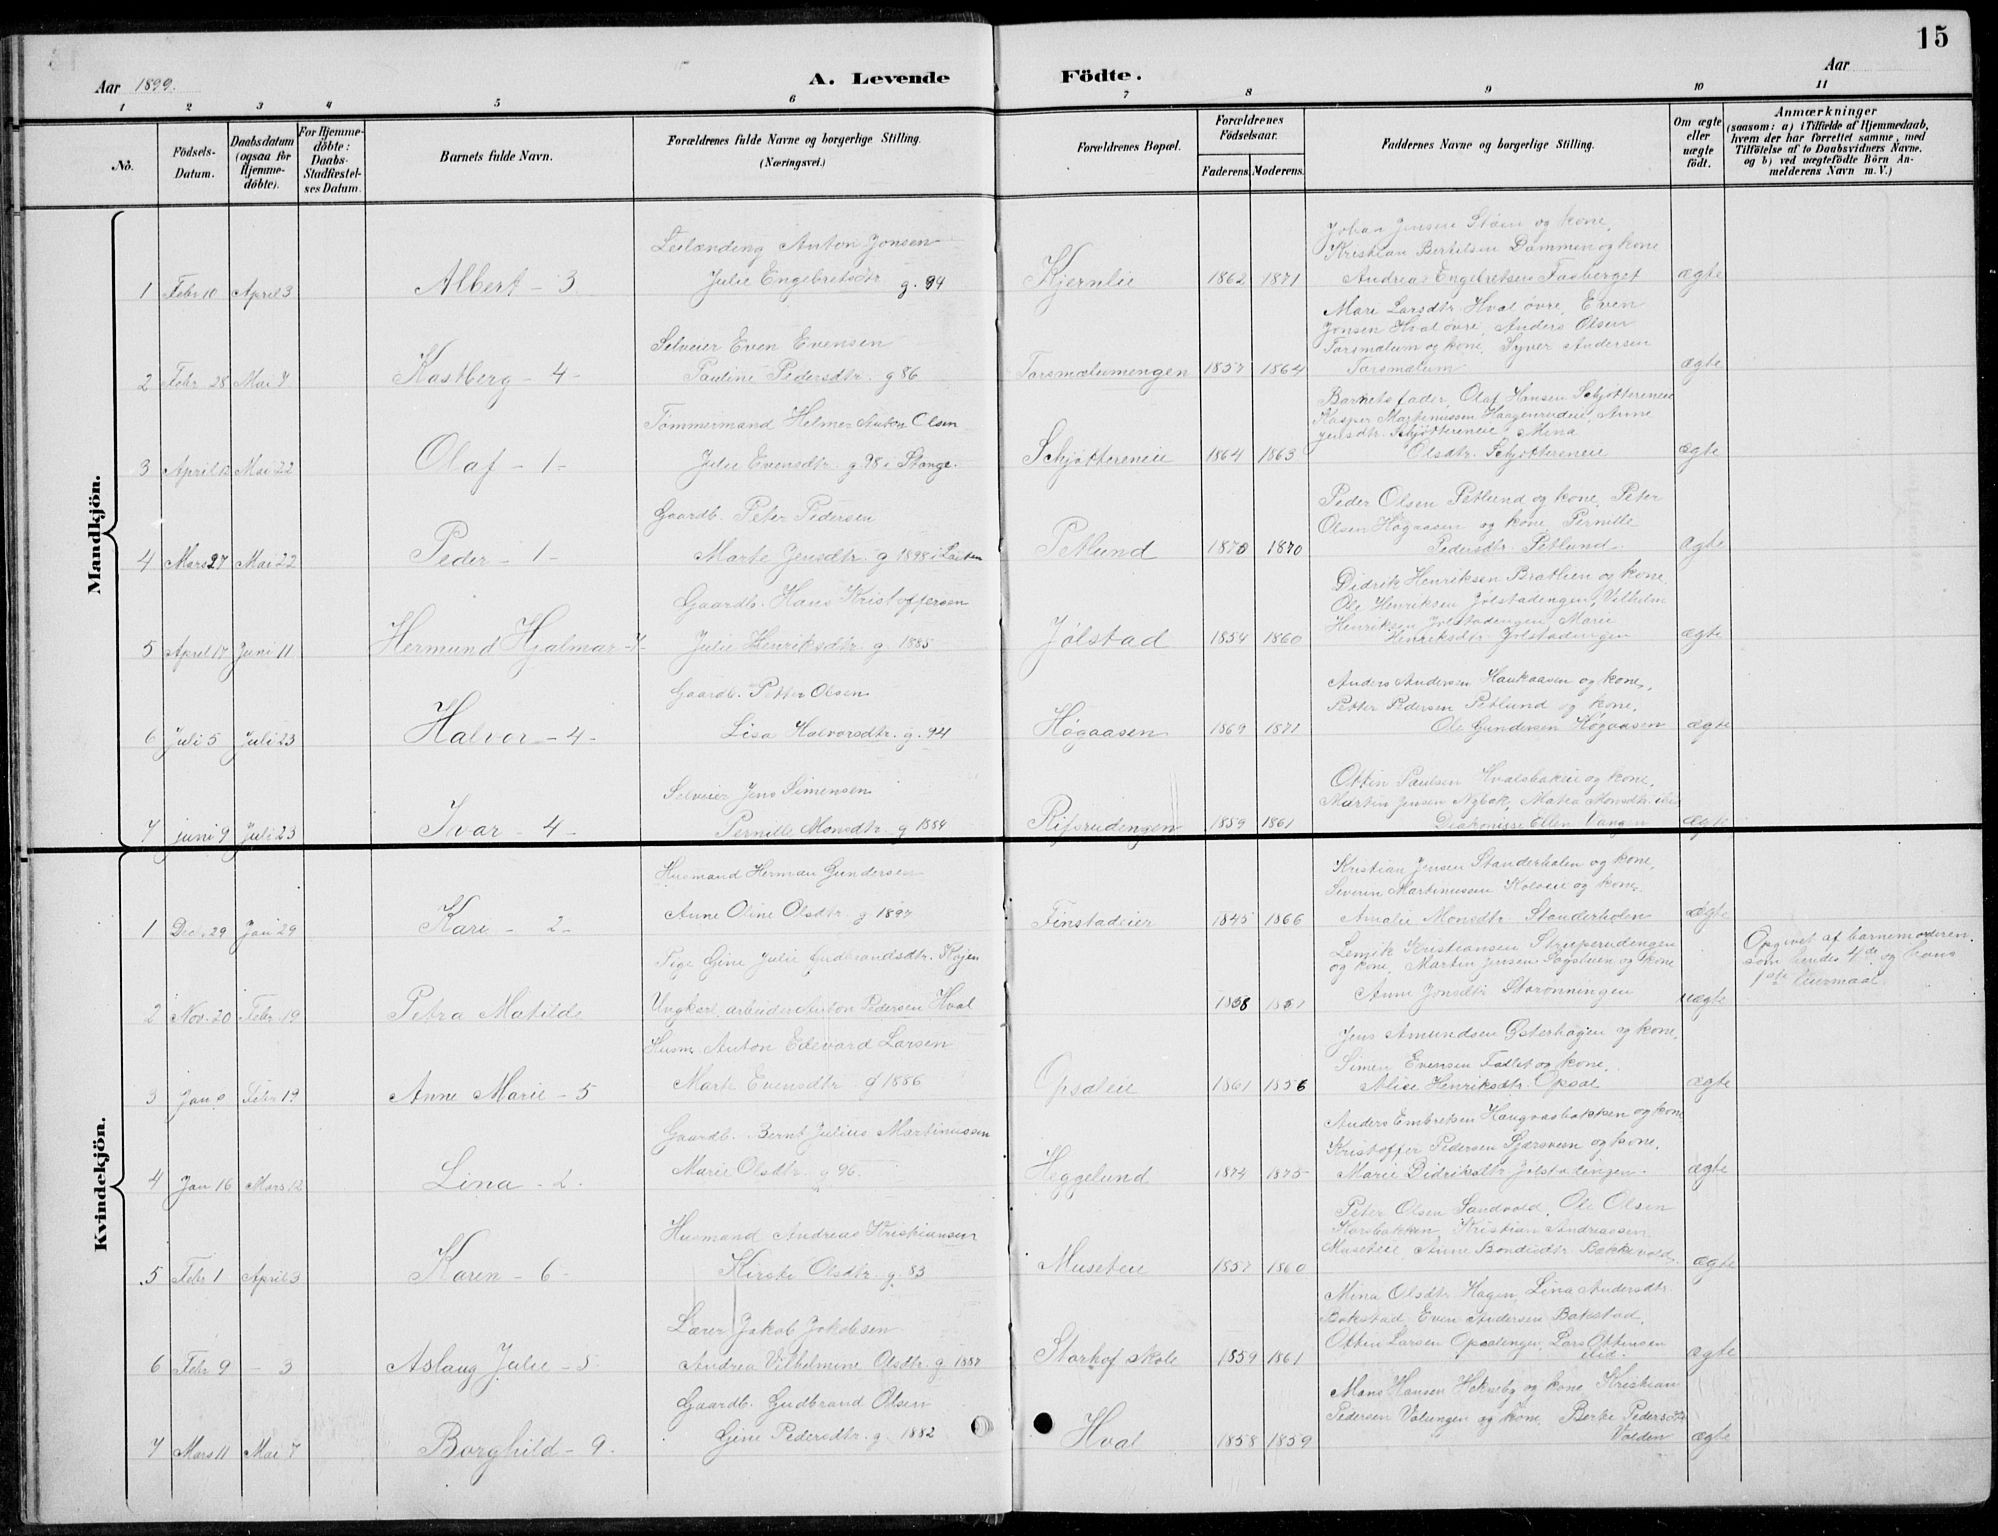 15
Aar 1899.
A. Levende Födte.
Aar
1 2 3 4 5 6 7 8 9 10 11
No.
Födsels-Datum.
Daabsdatum (ogsaa for Hjemme-döbte).
For Hjemme-döbte: Daabs-Stadfæstel-ses Datum.
Barnets fulde Navn.
Forældrenes fulde Navne og borgerlige Stilling. (Næringsvei.)
Forældrenes Bopæl.
Forældrenes Födselsaar.
Faderens. Moderens.
Faddernes Navne og borgerlige Stilling.
Om ægte eller uægte födt.
Anmærkninger
(saasom: a) i Tilfælde af Hjemmedaab, hvem der har forrettet samme, med Tilföielse af to Daabsvidners Navne. og b) ved uægtefödte Börn An-melderens Navn m. V.)
Mandkjön.
Leilænding Anton Jonsen
Johan Jensen Støen og kone,
Kristian Bertelsen Dammen og kone
1 Febr 10 April 3 Albert - 3 Julie Engebretsdtr g. 94 Kjernlie 1862 1871 Andreas Engebretsen Faaberget ægte
Mari Larsdtr. Hval øvre, Even
Jonsen Hval øvre, Anders Olsen
Selveier Even Evensen
Tarsmælum og kone, Syver Andersen
2 Febr. 28 Mai 7 Kastberg - 4 - Pauline Pedersdtr. g 86 Tarsmælumengen 1857 1864 Tarsmælum ægte
Barnets fader, Olaf Hansen Schjøttereneie
Tømmermand Helmer Anton Olsen
Kasper Martinussen Haagenrudeie, Anne
Jensdtr. Schjøttereneie Mina
3 April 12 Mai 22 Olaf - 1 - Julie Evensdtr. g 98 i Stange. Schjøttereneie 1864 1863 Olsdtr. Schjøttereneie ægte
Peder Olsen Petlund og kone, Peter
Gaardb. Peter Pedersen
Olsen Høgaasen og kone, Pernille
4 Mars 27 Mai 22 Peder - 1 - Marte Jensdtr. g 1898 i Løiten Petlund 1870 1870 Pedersdtr. Petlund. ægte
Didrik Henriksen Bratlien og kone
Gaardb. Hans Kristoffersen
Ole Henriksen Jølstadengen, Vilhelm
Henriksen Jølstadengen, Marie
5 April 17 Juni 11 Hermund Hjalmar - 7 Julie Henriksdtr. g 1885 Jølstad 1854 1860 Henriksdtr. Jølstadengen ægte
Anders Andersen Haukaasen og kone,
Gaardb. Petter Olsen
Petter Pedersen Petlund og kone,
6 Juli 5 Juli 23 Halvor - 4 - Lisa Halvorsdtr. g. 94 Høgaasen 1869 1871 Ole Gundersen Høgaasen ægte
Ottin Paulsen Hvalsbakeie og kone,
Selveier Jens Simensen
Martin Jensen Nybak, Matea Monsdtr. ibid
7 juni 9 Juli 23 Ivar - 4 - Pernille Monsdtr. g 1884 Rifsrudengen 1859 1861 Diakonisse Ellen Vangen ægte
Kvindekjön.
Kristian Jensen Standerholen og kone,
Husmand Herman Gundersen
Severin Martinussen Kolveie og kone.
1 Dec. 29 Jan 29 Kari - 2 - Anne Oline Olsdtr. g 1897 Finstadeier 1845 1866 Amalie Monsdtr. Standerholen ægte
Lemik Kristiansen Struperudengen
Pige Gine Julie Gudbrandsdtr. Skøjen
og kone, Martin Jensen Sagstuen og kone
2 Nov. 20 Febr. 19 Petra Matilde Ungkarl, arbeider Anton Pedersen Hval Anne Jonsdtr. Storønningen uægte
Opgivet af barnemoderen.
som hendes 4de og hans
1ste leiermaal
Jens Amundsen Østerhagen og kone,
Husm. Anton Edevard Larsen
Simen Evensen Fallet og kone,
3 Jan 9 Febr 19 Anne Marie - 5 Marte Evensdtr. g 1886 Opsaleie 1861 1856 Alise Henriksdtr. Opsal ægte
Anders Embretsen Haugaasbakken og kone
Gaardb. Bernt Julius Martinussen
Kristoffer Pedersen Sjærsveen og kone,
4 Jan 16 Mars 12 Lina - 2 - Marie Olsdtr. g 96. Heggelund 1874 1875 Marie Didriksdtr. Jølstadengen. ægte
Peter Olsen Sandvold, Ole Olsen
Husmand Andreas Kristiansen
Korsbakken, Kristian Andreassen
5 Febr 1 April 3 Karen - 6 - Kirsti Olsdtr. g. 83 Museteie 1857 1860 Museteie Anne Bondesdtr. Bækkevold. ægte
Mina Olsdtr. Hagen, Lina Andersdtr.
Bakstad, Even Andersen Bakstad,
Lærer Jakob Jakobsen
Ottin Larsen Opsalengen, Lars Ottensen
6 Febr 9 - 3 Aslaug Julie - 5. Andrea Vilhelmine Olsdtr. g 1887 Storhof skole 1859 1861 ibid. ægte
Mons Hansen Hekneby og kone, Kristian
Gaardb. Gudbrand Olsen
Pedersen Volungen og kone, Berte Pedersdtr
7 Mars 11 Mai 7 Borghild - 9 Gine Pedersdtr. g. 1882 Hval 1858 1859 Volden ægte